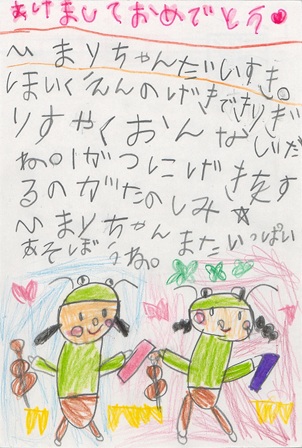 あけましておめでとう
ひまりちゃんだいすき。
ほいくえんのげきできりぎ
りすやくおんなじだ
ね。1がつにげきをす
るのがたのしみ☆
ひまりちゃんまたいっぱい
あそぼうね。